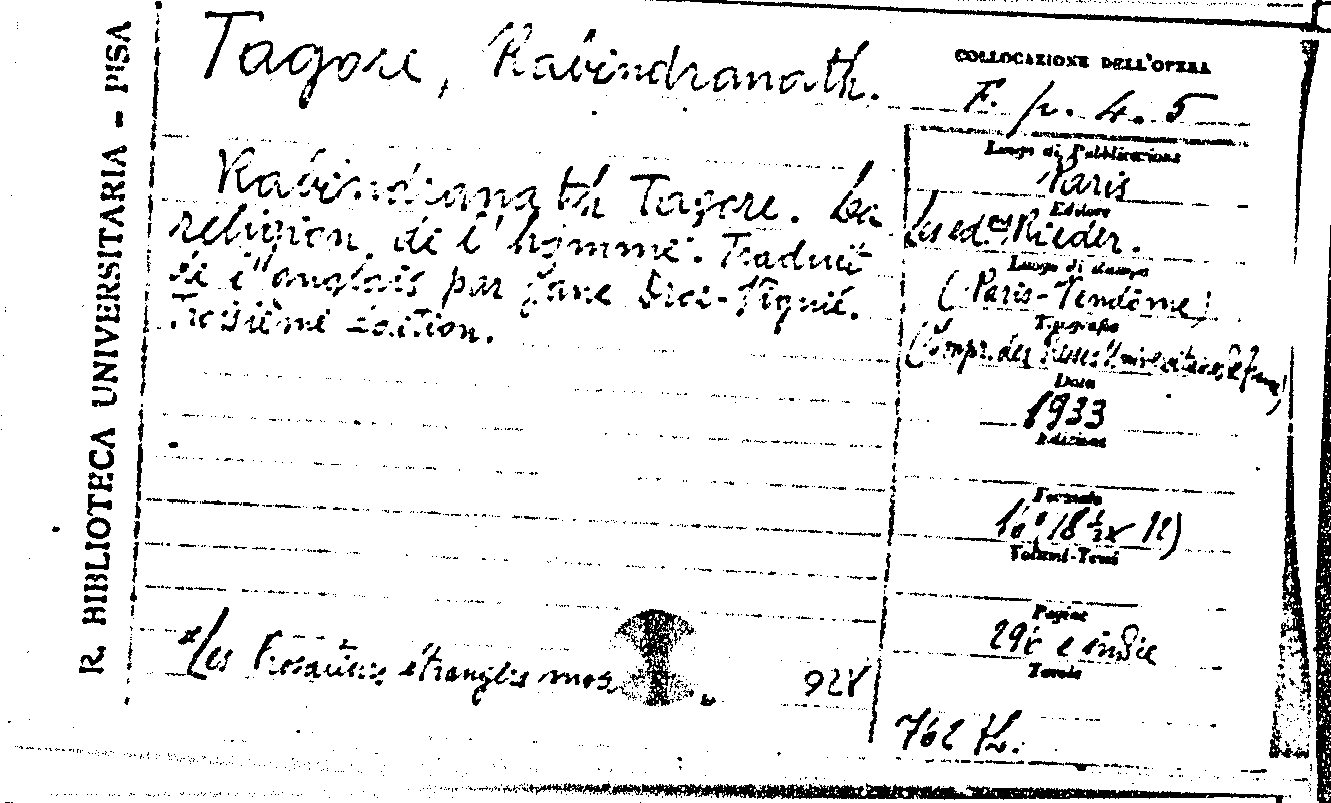 R. BIBLIOTECA UNIVERSITARIA - PISA
Tagore, Rabindranath.
Rabindranath Tagore. La
religion de l'homme. Traduit
de l'anglais par Jane Droz-Viguié.
Troisième Édition.
Les Prosateurs étrangers mod
928
COLLOCAZIONE DELL'OPERA
F. p. 4. 5
Luogo di Pubblicazione
Paris
Editore
Les ed.ons Rieder.
Luogo di stampa
(Paris-Vendôme)
Tipografia
(Impr. des Presses Universitaires de France)
Data
1933
Edizione
Formato
16° (18 ½ x 12)
Volumi-Tomi
Pagine
e indice
Tavole